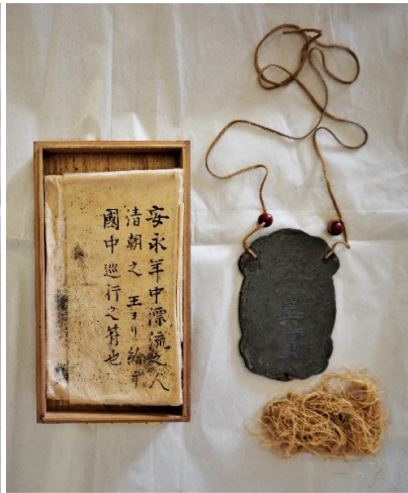 安永年中漂流之人
清朝之王ヨリ給ハ
國中巡行之符也